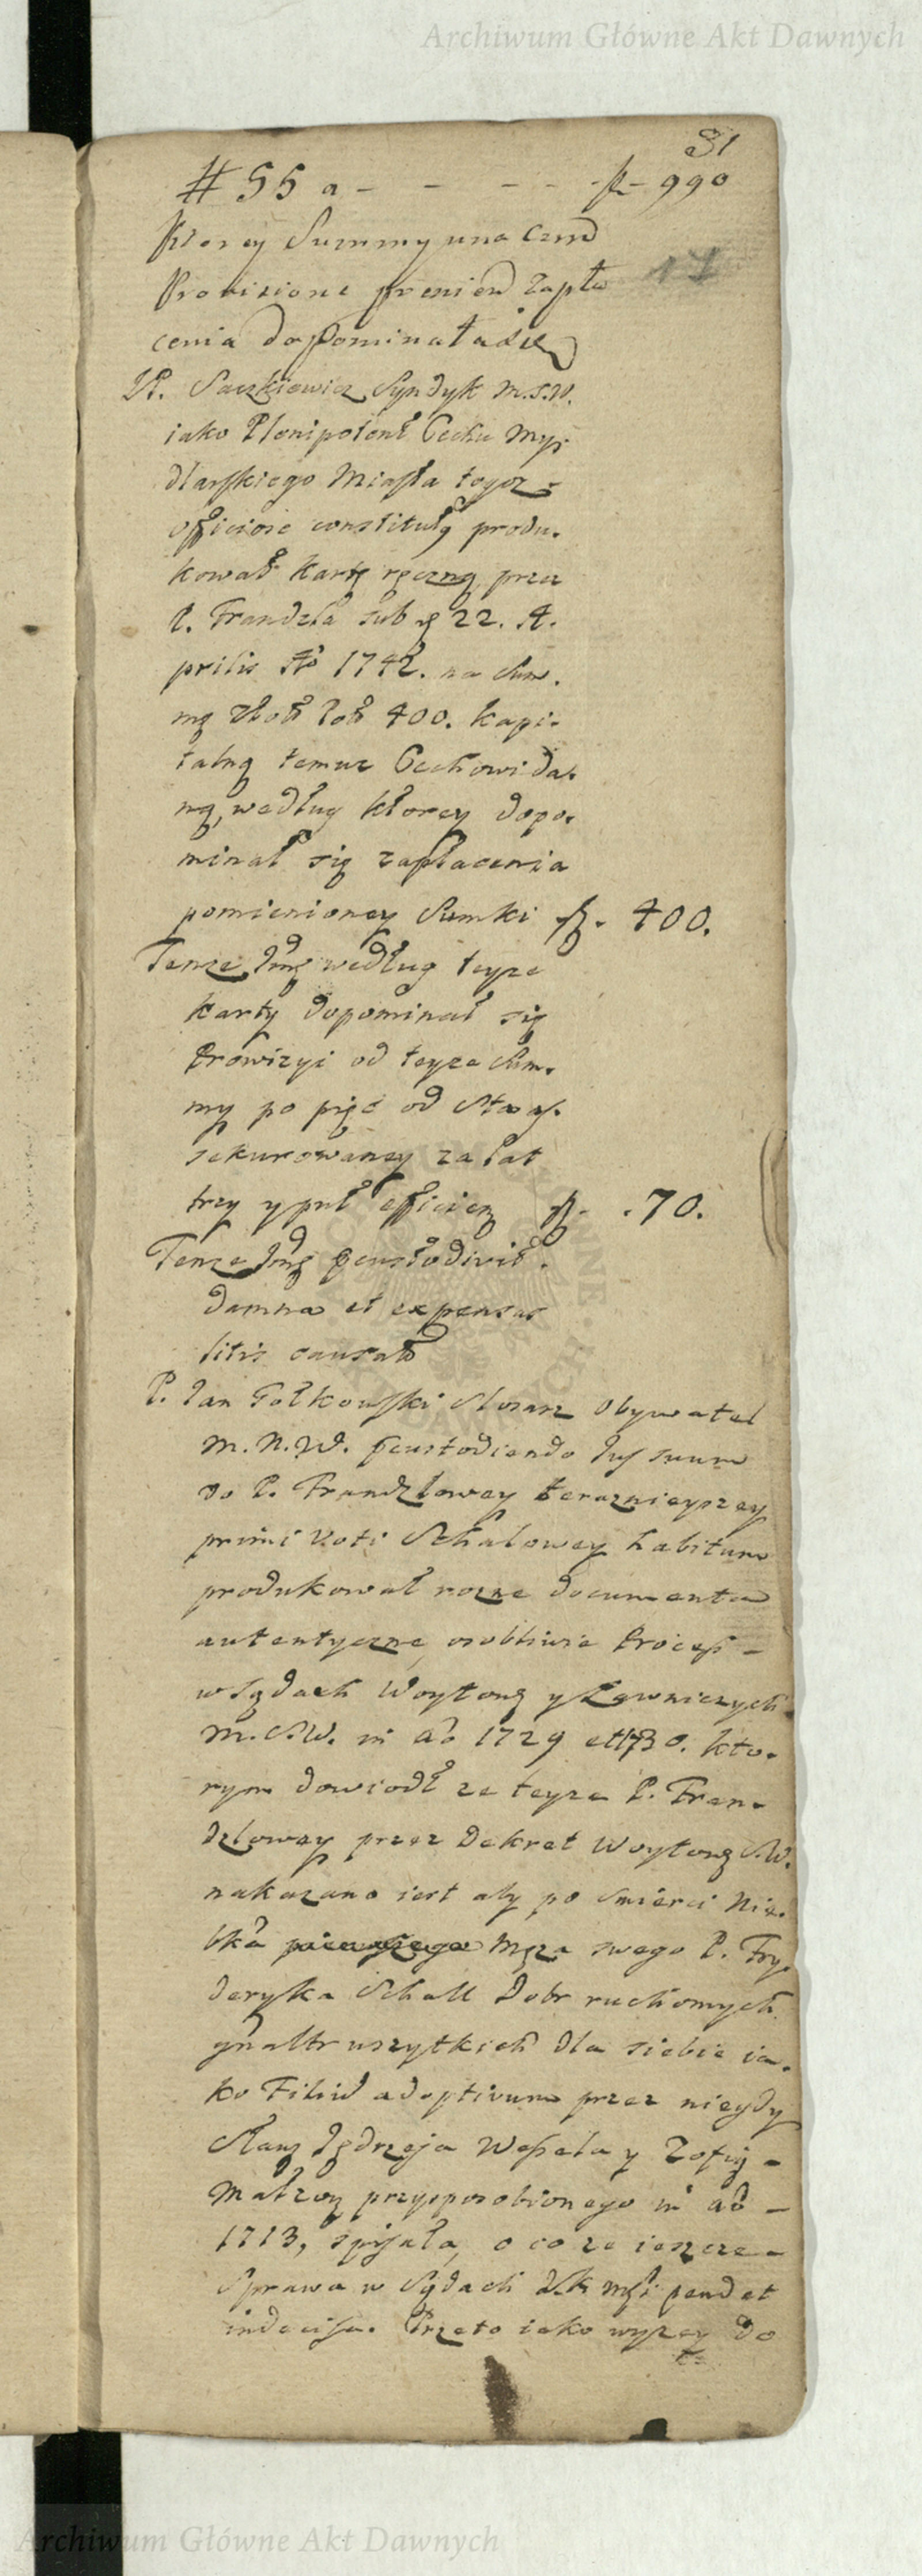 Archiwum Główne Akt Dawnych
31
# 55 a - - - - - fl - 990
Ktorey Summy una cum
17
Provisione premiend Zapła
cenia dopominała się
JP. Saczkiewicz Syndyk M.S.W.
iako Plenipotent Cechu My-
dlarskiego Miasta tegoz
officiose constitutą produ.
kował kartę ręczną przez
P. Frandzla sub 22. A.
prilis Ao 1742. na Sum.
mę Złott Poll 400. kapi.
talną temuz Cechowi da.
ną, według ktorey dopo.
minał się zapłacenia
pomienioney Sumki fl. 400.
Tenze Jmć według teyze
karty dopominał się
Prowizyi od teyze Sum.
my po pięć od Sta as.
sekurowaney za lat
trzy y puł efficien fl. .70.
Tenze Jmć
damna et expensas
litis causatt
P. Jan Tołkowski Slosarz Obywatel
M.N.W. custodiendo Jus suum
do P. Frandzlowey teraznieyszey
primi Voti Schalowey habitum
produkował rozne documenta
autentyczne, osobliwie Process -
w Sądach Woytows y Ławniczych
M.S.W. in Ao 1729 et 1730. kto.
rym dowiodł ze teyze P. Fran.
dzlowey przez Dekret Woytows S.W.
nakazano iest aby po smierci Nie.
bka pierwszego Męza swego P. Fry
deryka Schall Dobr ruchomych
gnaltr wszytkich dla siebie ia.
ko Filium adoptivum przez niegdy
Sław Jędrzeja Wessela y Zofią -
Małzon przysposobionego in Ao -
1713, spisała, o co ze ieszcze -
Sprawa w Sądach pendet
indecisa. Przeto iako wyzey do
Archiwum Główne Akt Dawnych